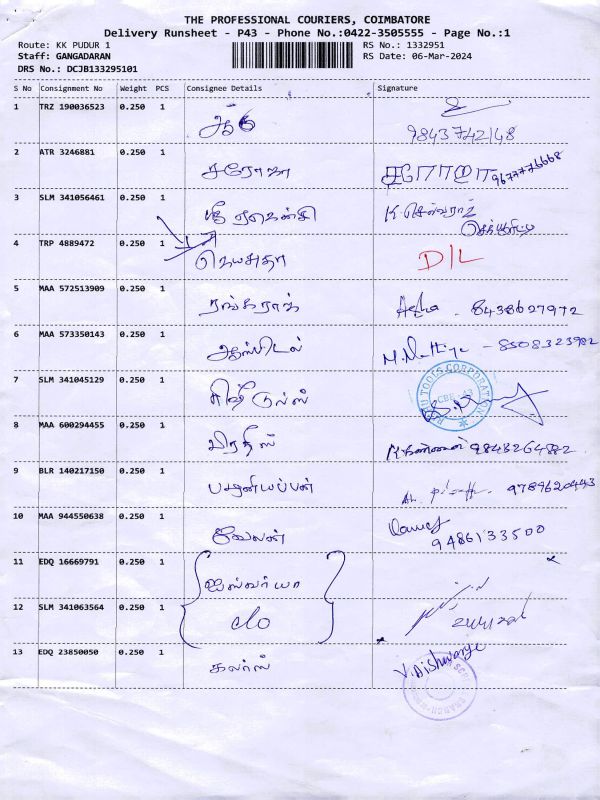 THE PROFESSIONAL COURIERS, COIMBATORE
Delivery Runsheet - P43 - Phone No.:0422-3505555 - Page No.:1
Route: KK PUDUR 1 RS No.: 1332951
Staff: GANGADARAN RS Date: 06-Mar-2024
DRS No.: DCJB133295101
S No Consignment No Weight PCS Consignee Details Signature
1 TRZ 190036523 0.250 1
9843742148
2 ATR 3246881 0.250 1 சரோஜா சரோஜா 9677776668
3 SLM 341056461 0.250 1 ஸ்ரீ ஏஜென்சி K. செல்வராஜ்
4 TRP 4889472 0.250 1 ஜெயசுதா D/L
5 MAA 572513909 0.250 1 ரங்கராஜ் 8438627972
6 MAA 573350143 0.250 1 ஆஸ்பிடல் 8508323982
7 SLM 341045129 0.250 1 டூல்ஸ் TOOLS CORPORATION
8 MAA 600294455 0.250 1 K. கண்ணன் 9843264882
9 BLR 140217150 0.250 1 பழனியப்பன் 9789620443
10 MAA 944550638 0.250 1 வேலன்
9486133500
11 EDQ 16669791 0.250 1 ஐஸ்வர்யா
12 SLM 341063564 0.250 1 c/o
13 EDQ 23850050 0.250 1 கலர்ஸ் V. Aishwarya